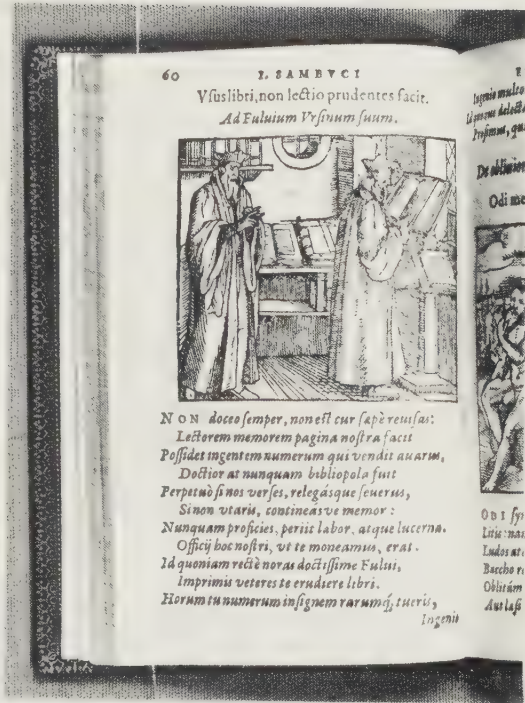 60 I. SAMBVCI
Vsus libri, non lectio prudentes facit.
Ad Fuluium Vrsinum suum.
NON doceo semper, non est cur sæpè reuisas:
Lectorem memorem pagina nostra facit
Possidet ingentem numerum qui vendit auarus,
Doctior at nunquam bibliopola fuit
Perpetuò si nos verses, relegásque seuerus,
Si non vtaris, contineas ve memor:
Nunquam proficies, periit labor, atque lucerna.
Officij hoc nostri, vt te moneamus, erat.
Id quoniam rectè noras doctissime Fului,
Imprimis veteres te erudiere libri.
Horum tu numerum insignem rarumq́; tueris,
Ingenii
Ingenio multo
De obliuion
Odi me
ODI
Ludos at
Baccho